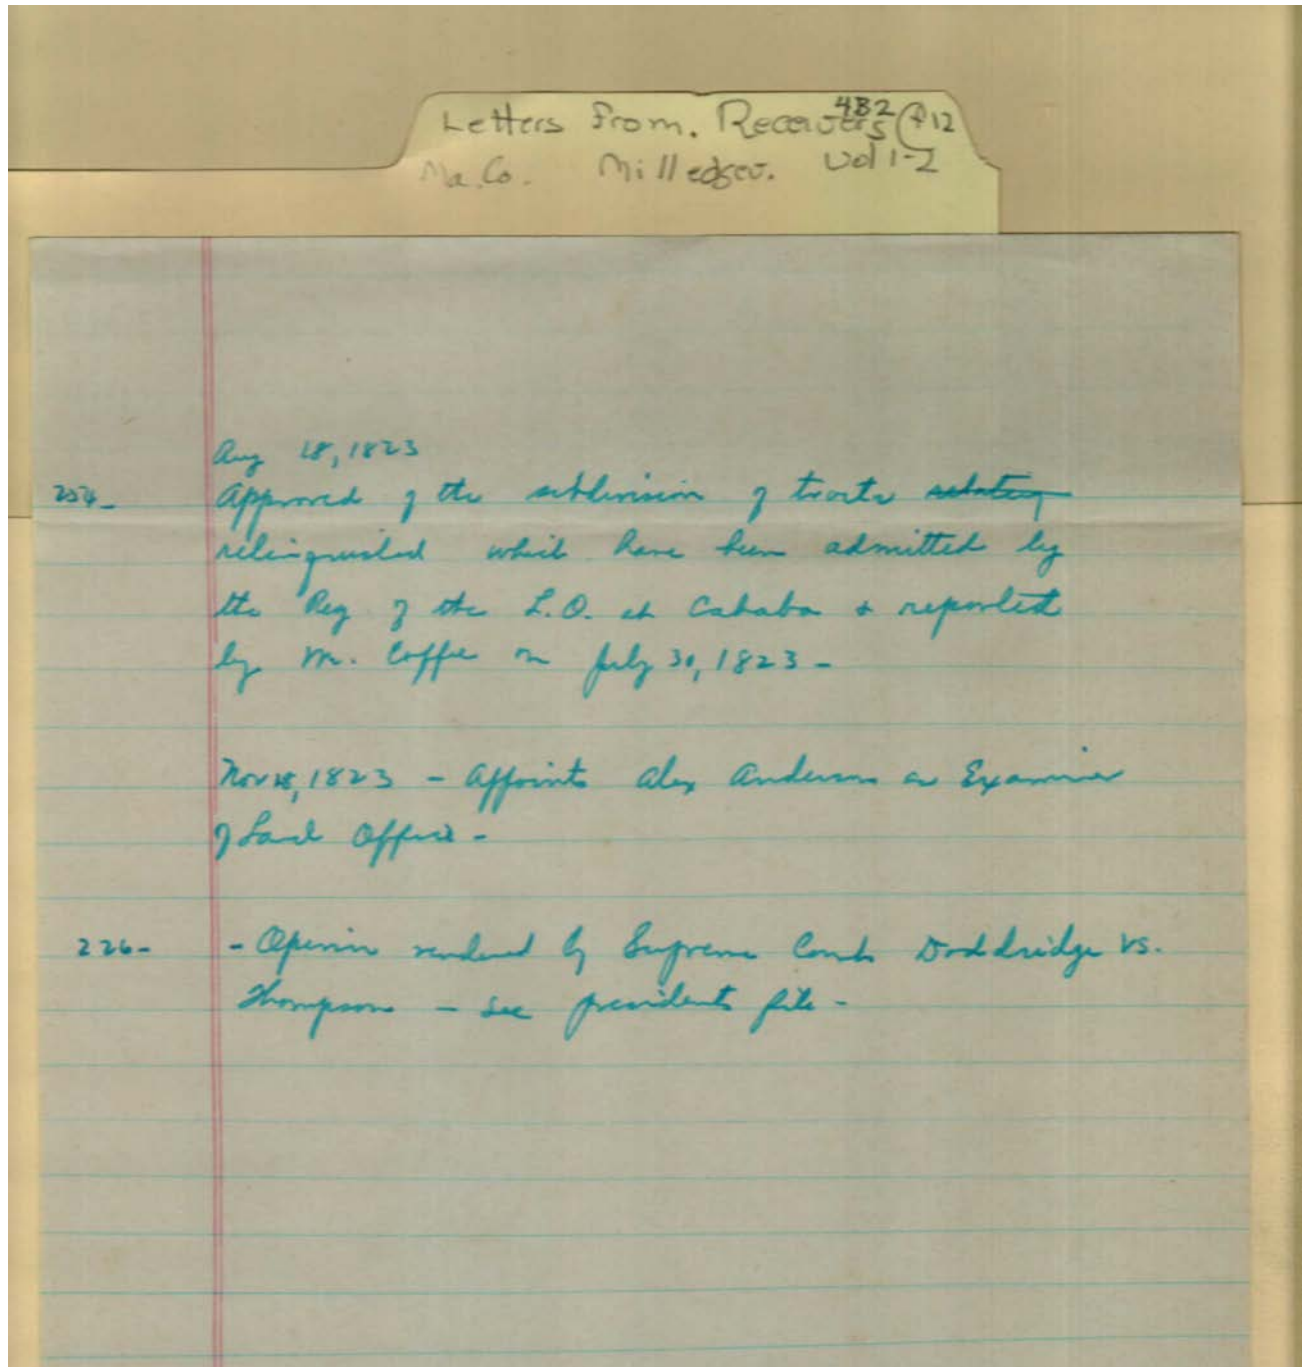 Letters From. Receivers 4B2 P12
Ma. Co. Milledgev. Vol 1-2
Aug 18, 1823
204- Approved of the subdivision of tracts relating
relinquished which have been admitted by
the Reg of the L.O. at Cahaba & reported
by Mr. Coffee on July 30, 1823 -
Nov 18, 1823 - Appoints Alex Anderson as Examiner
of Land Office -
226- - Opinion rendered by Supreme Court Doddridge vs.
Thompson - see presidents file -